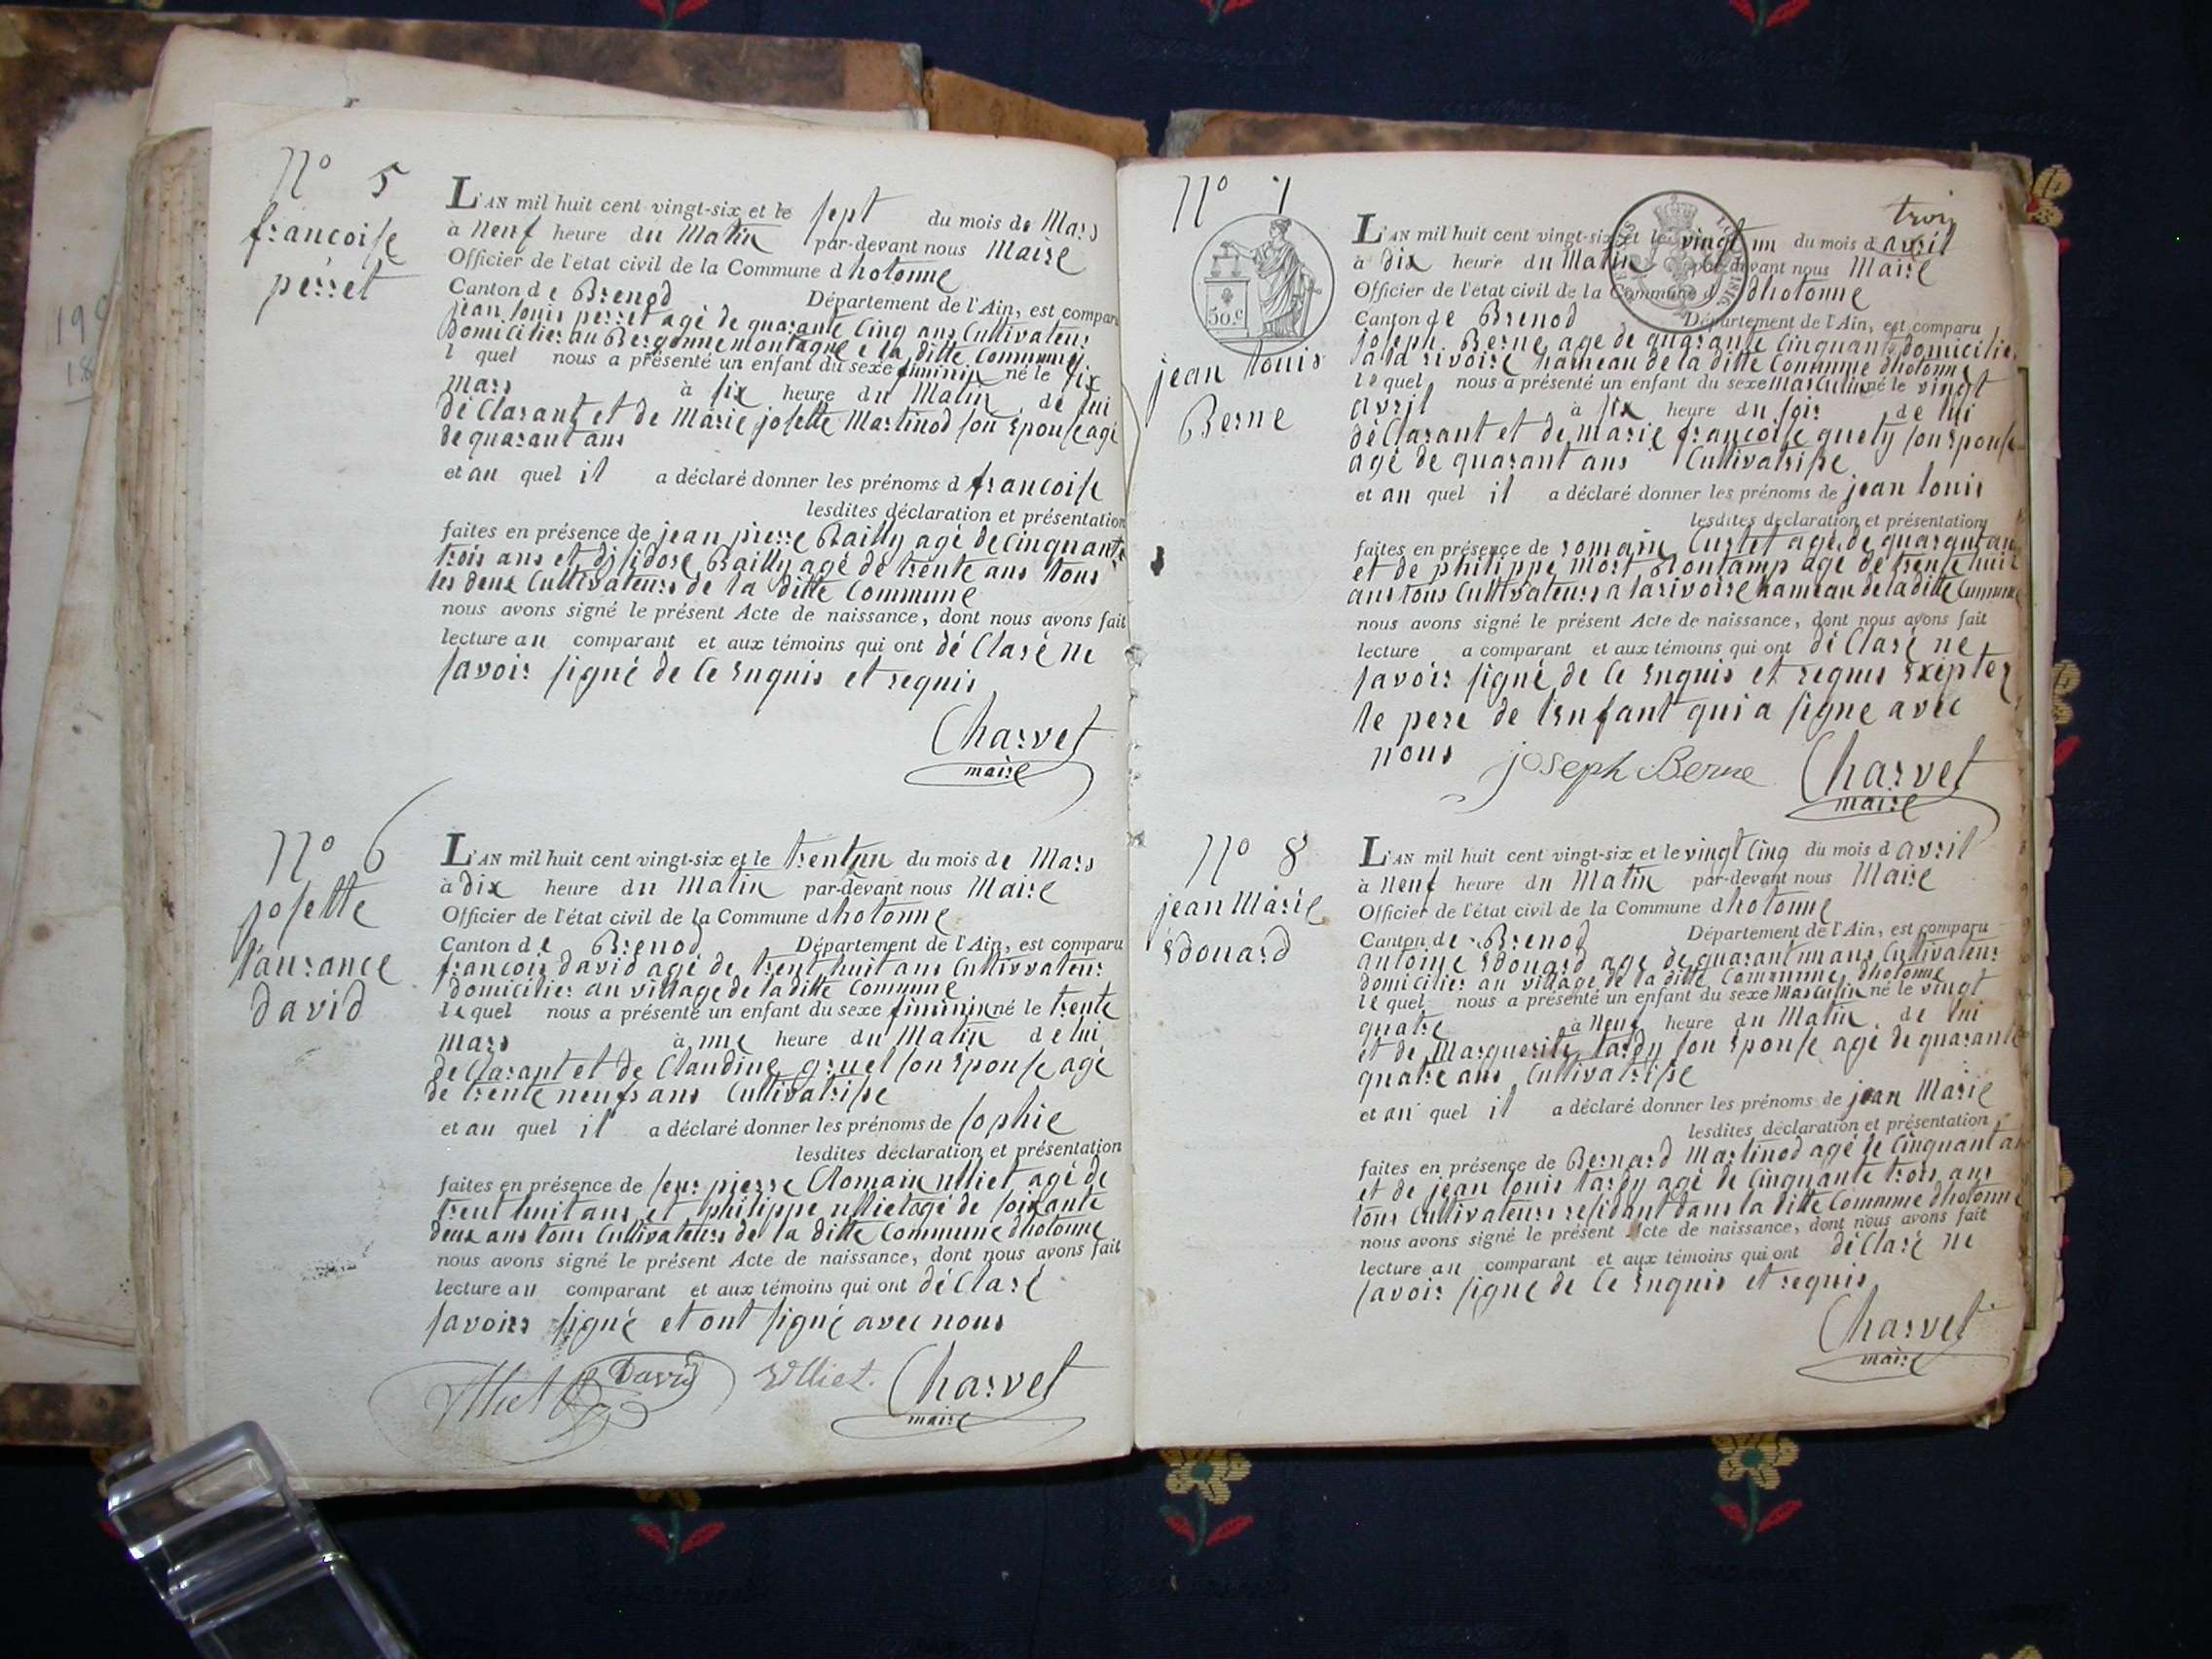 N° 5
francoise
perret
L'AN mil huit cent vingt-six et le sept du mois de Mars
à neuf heure du Matin par-devant nous Maire
Officier de l'état civil de la Commune d hotonne
Canton de Brenod Département de l'Ain, est comparu
jean louis perret agé de quarante Cinq ans Cultivateur
domicilier au Bergonne montagne e la ditte Commune
l quel nous a présenté un enfant du sexe fiminin né le six
mars à six heure du Matin de lui
déClarant et de Marie josette Martinod son epouse agé
de quarant ans
et au quel il a déclaré donner les prénoms d francoise
lesdites déclaration et présentation
faites en présence de jean pierre Bailly agé de Cinquante
trois ans et disidore Bailly agé de trente ans tous
les deux Cultivateurs de la ditte Commune
nous avons signé le présent Acte de naissance, dont nous avons fait
lecture au comparant et aux témoins qui ont déClaré ne
savoir signé de Ce enquis et requis
Charvet
maire
N° 6
josette
laurance
david
L'AN mil huit cent vingt-six et le trentun du mois de Mars
à dix heure du Matin par-devant nous Maire
Officier de l'état civil de la Commune dhotonne
Canton de Brenod Département de l'Ain, est comparu
francois david agé de trent huit ans Cultivvateur
domicilier au village de la ditte Commune
lequel nous a présenté un enfant du sexe fiminin né le trente
mars à une heure du Matin de lui
deClarant et de Claudine gruel son epouse agé
de trente neufs ans Cultivatrise
et au quel il a déclaré donner les prénoms de sophie
lesdites déclaration et présentation
faites en présence de pierre Romain ulliet agé de
trent huit ans et philippe ullietagé de soixante
deux ans tous Cultivateurs de la ditte Commune dhotonne
nous avons signé le présent Acte de naissance, dont nous avons fait
lecture au comparant et aux témoins qui ont déClaré
savoirs signé et ont signé avec nous
Ulliet David Ulliet. Charvet
maire
N° 7
trois
50.c
1816
jean louis
Berne
L'AN mil huit cent vingt-six et le vingt un du mois d avril
à dix heure du Matin par-devant nous Maire
Officier de l'état civil de la Commune d dhotonne
Canton de Brenod Département de l'Ain, est comparu
joseph Berne age de quarante Cinquans domicilier
a la rivoire hameau de la ditte Commune dhotonne
lequel nous a présenté un enfant du sexe masculin né le vingt
avril à six heure du soir de lui
déClarant et de marie francoise guety son epouse
agé de quarant ans Cultivatrise
et au quel il a déclaré donner les prénoms de jean louis
lesdites déclaration et présentation
faites en présence de romain Curtet agé de quarantans
et de philippe mort Montamp agé de trente huit
ans tous Cultivateurs a larivoire hameau de la ditte Commune
nous avons signé le présent Acte de naissance, dont nous avons fait
lecture a comparant et aux témoins qui ont déClaré ne
savoir signé de Ce enquis et requis exiptez
le pere de lenfant qui a signe avec
nous joseph Berne Charvet
maire
N° 8
jean Marie
edouard
L'AN mil huit cent vingt-six et le vingt Cinq du mois d avril
à neuf heure du Matin par-devant nous Maire
Officier de l'état civil de la Commune dhotonne
Canton de Brenod Département de l'Ain, est comparu
antoine edouard age de quarantun ans Cultivateur
domicilier au village de la ditte Commune dhotonne
lequel nous a présenté un enfant du sexe masculin né le vingt
quatre à neuf heure du Matin de lui
et de Marguerite tardy son epouse agé de quarante
quatre ans Cultivatrise
et au quel il a déclaré donner les prénoms de jean Marie
lesdites déclaration et présentation
faites en présence de Bernard Martinod agé de Cinquant an
et de jean louis tardy agé de Cinquante trois ans
tous Cultivateurs residant dans la ditte Commune dhotonne
nous avons signé le présent Acte de naissance, dont nous avons fait
lecture au comparant et aux témoins qui ont déClaré ne
savoir signé de Ce enquis et requis
Charvet
maire